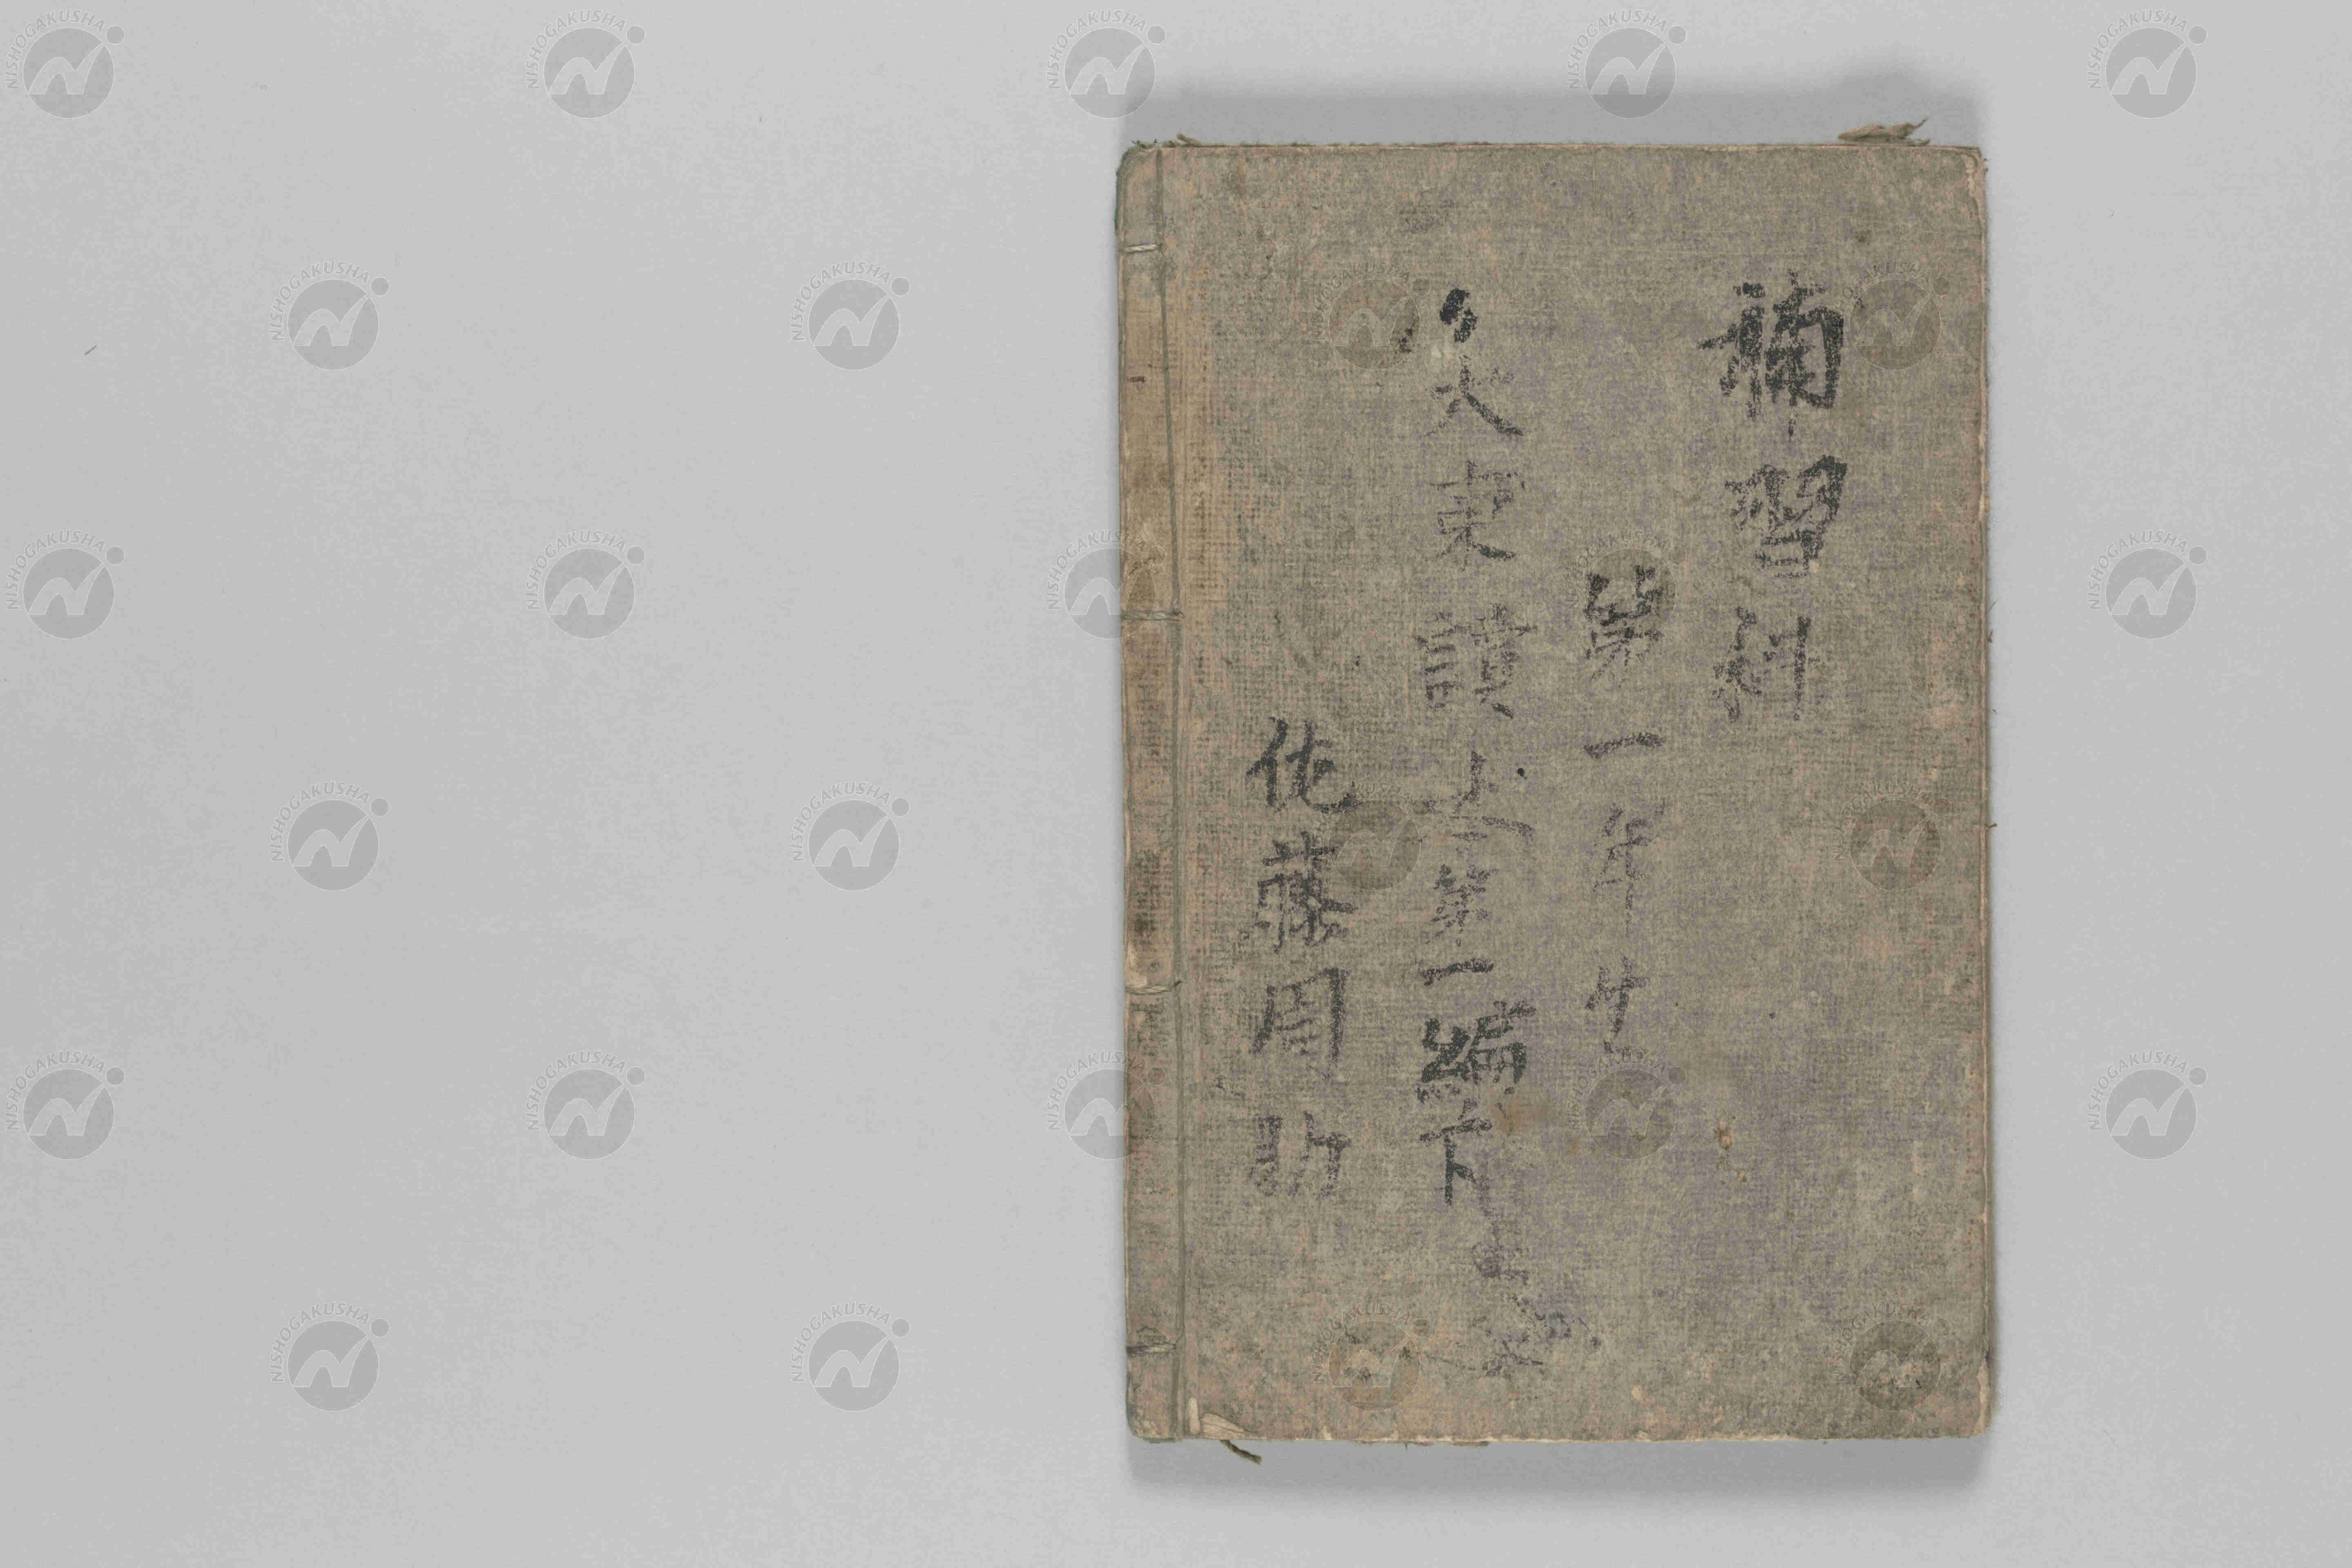 補習科
第一年生
讀 第一編下
佐藤周助
NISHOGAKUSHA